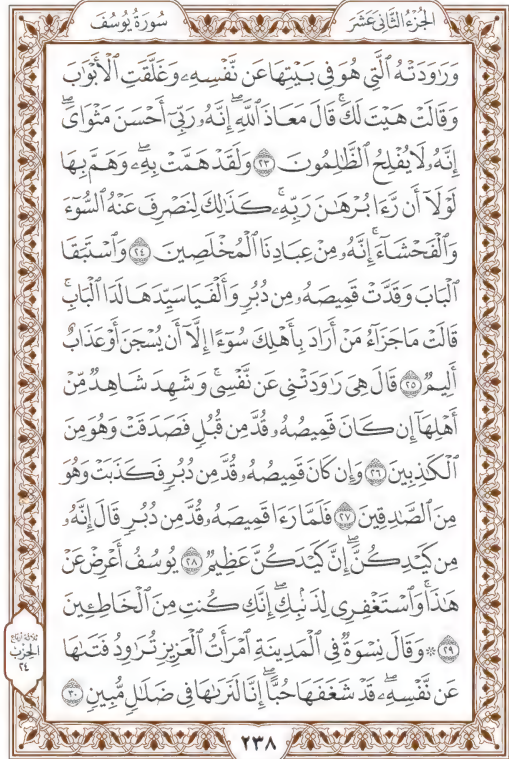 سُورَةُ يُوسُفَ
الجُزْءُ الثَّانِي عَشَرَ
وَرَٰوَدَتْهُ ٱلَّتِي هُوَ فِي بَيْتِهَا عَن نَّفْسِهِۦ وَغَلَّقَتِ ٱلْأَبْوَٰبَ
وَقَالَتْ هَيْتَ لَكَۚ قَالَ مَعَاذَ ٱللَّهِۖ إِنَّهُۥ رَبِّيٓ أَحْسَنَ مَثْوَايَۖ
إِنَّهُۥ لَا يُفْلِحُ ٱلظَّٰلِمُونَ ٢٣ وَلَقَدْ هَمَّتْ بِهِۦۖ وَهَمَّ بِهَا
لَوْلَآ أَن رَّءَا بُرْهَٰنَ رَبِّهِۦۚ كَذَٰلِكَ لِنَصْرِفَ عَنْهُ ٱلسُّوٓءَ
وَٱلْفَحْشَآءَۚ إِنَّهُۥ مِنْ عِبَادِنَا ٱلْمُخْلَصِينَ ٢٤ وَٱسْتَبَقَا
ٱلْبَابَ وَقَدَّتْ قَمِيصَهُۥ مِن دُبُرٍ وَأَلْفَيَا سَيِّدَهَا لَدَا ٱلْبَابِۚ
قَالَتْ مَا جَزَآءُ مَنْ أَرَادَ بِأَهْلِكَ سُوٓءًا إِلَّآ أَن يُسْجَنَ أَوْ عَذَابٌ
أَلِيمٌ ٢٥ قَالَ هِيَ رَٰوَدَتْنِي عَن نَّفْسِيۚ وَشَهِدَ شَاهِدٌ مِّنْ
أَهْلِهَآ إِن كَانَ قَمِيصُهُۥ قُدَّ مِن قُبُلٍ فَصَدَقَتْ وَهُوَ مِنَ
ٱلْكَٰذِبِينَ ٢٦ وَإِن كَانَ قَمِيصُهُۥ قُدَّ مِن دُبُرٍ فَكَذَبَتْ وَهُوَ
مِنَ ٱلصَّٰدِقِينَ ٢٧ فَلَمَّا رَءَا قَمِيصَهُۥ قُدَّ مِن دُبُرٍ قَالَ إِنَّهُۥ
مِن كَيْدِكُنَّۖ إِنَّ كَيْدَكُنَّ عَظِيمٌ ٢٨ يُوسُفُ أَعْرِضْ عَنْ
هَٰذَاۚ وَٱسْتَغْفِرِي لِذَنۢبِكِۖ إِنَّكِ كُنتِ مِنَ ٱلْخَاطِـِٔينَ
٢٩ ۞ وَقَالَ نِسْوَةٌ فِي ٱلْمَدِينَةِ ٱمْرَأَتُ ٱلْعَزِيزِ تُرَٰوِدُ فَتَىٰهَا
عَن نَّفْسِهِۦۖ قَدْ شَغَفَهَا حُبًّاۖ إِنَّا لَنَرَىٰهَا فِي ضَلَٰلٍ مُّبِينٍ ٣٠
ثلاثة أرباع
الحزب
٢٤
٢٣٨